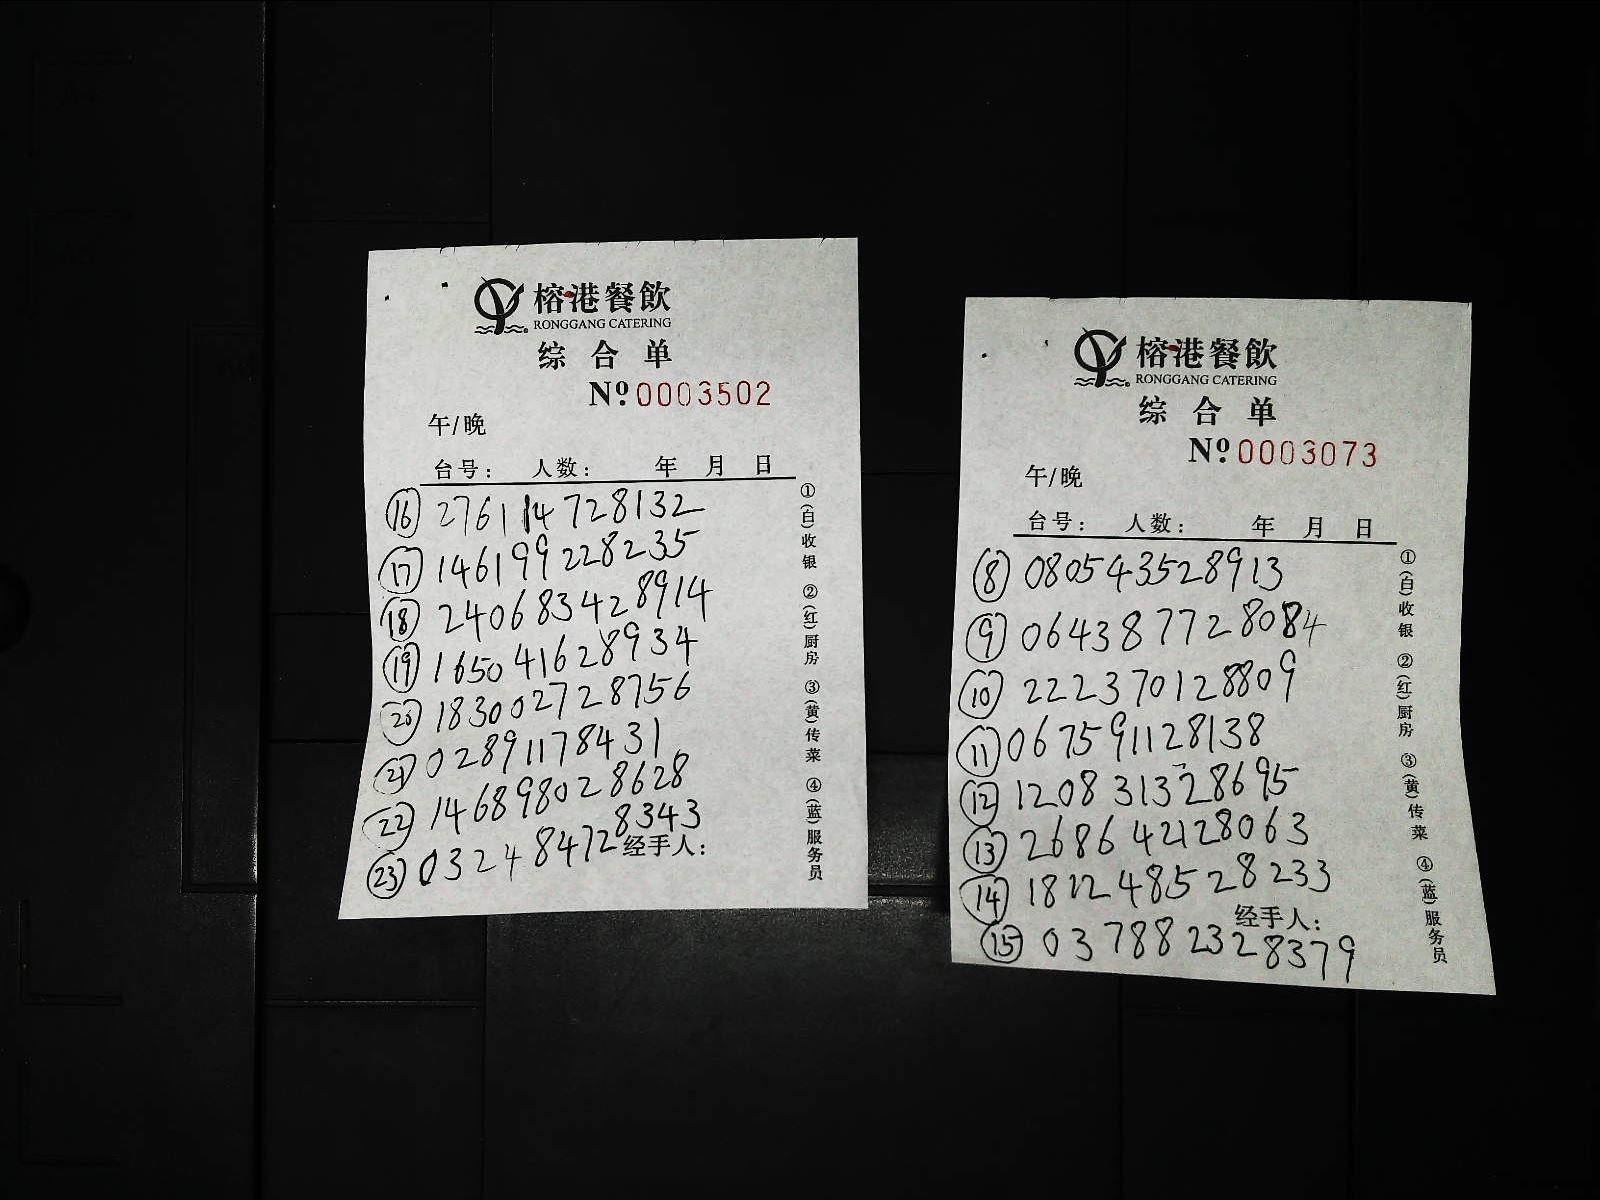 榕港餐飲
RONGGANG CATERING
综合单
Nº 0003502
午/晚
台号: 人数: 年 月 日
⑯ 276114728132
⑰ 146199228235
⑱ 240683428914
⑲ 165041628934
⑳ 183002728756
㉑ 02891178431
㉒ 146898028628
㉓ 032484728343
经手人:
①(白)收银 ②(红)厨房 ③(黄)传菜 ④(蓝)服务员
榕港餐飲
RONGGANG CATERING
综合单
Nº 0003073
午/晚
台号: 人数: 年 月 日
⑧ 080543528913
⑨ 064387728084
⑩ 222370128809
⑪ 067591128138
⑫ 120831328695
⑬ 268642128063
⑭ 182248528233
经手人:
⑮ 037882328379
①(白)收银 ②(红)厨房 ③(黄)传菜 ④(蓝)服务员